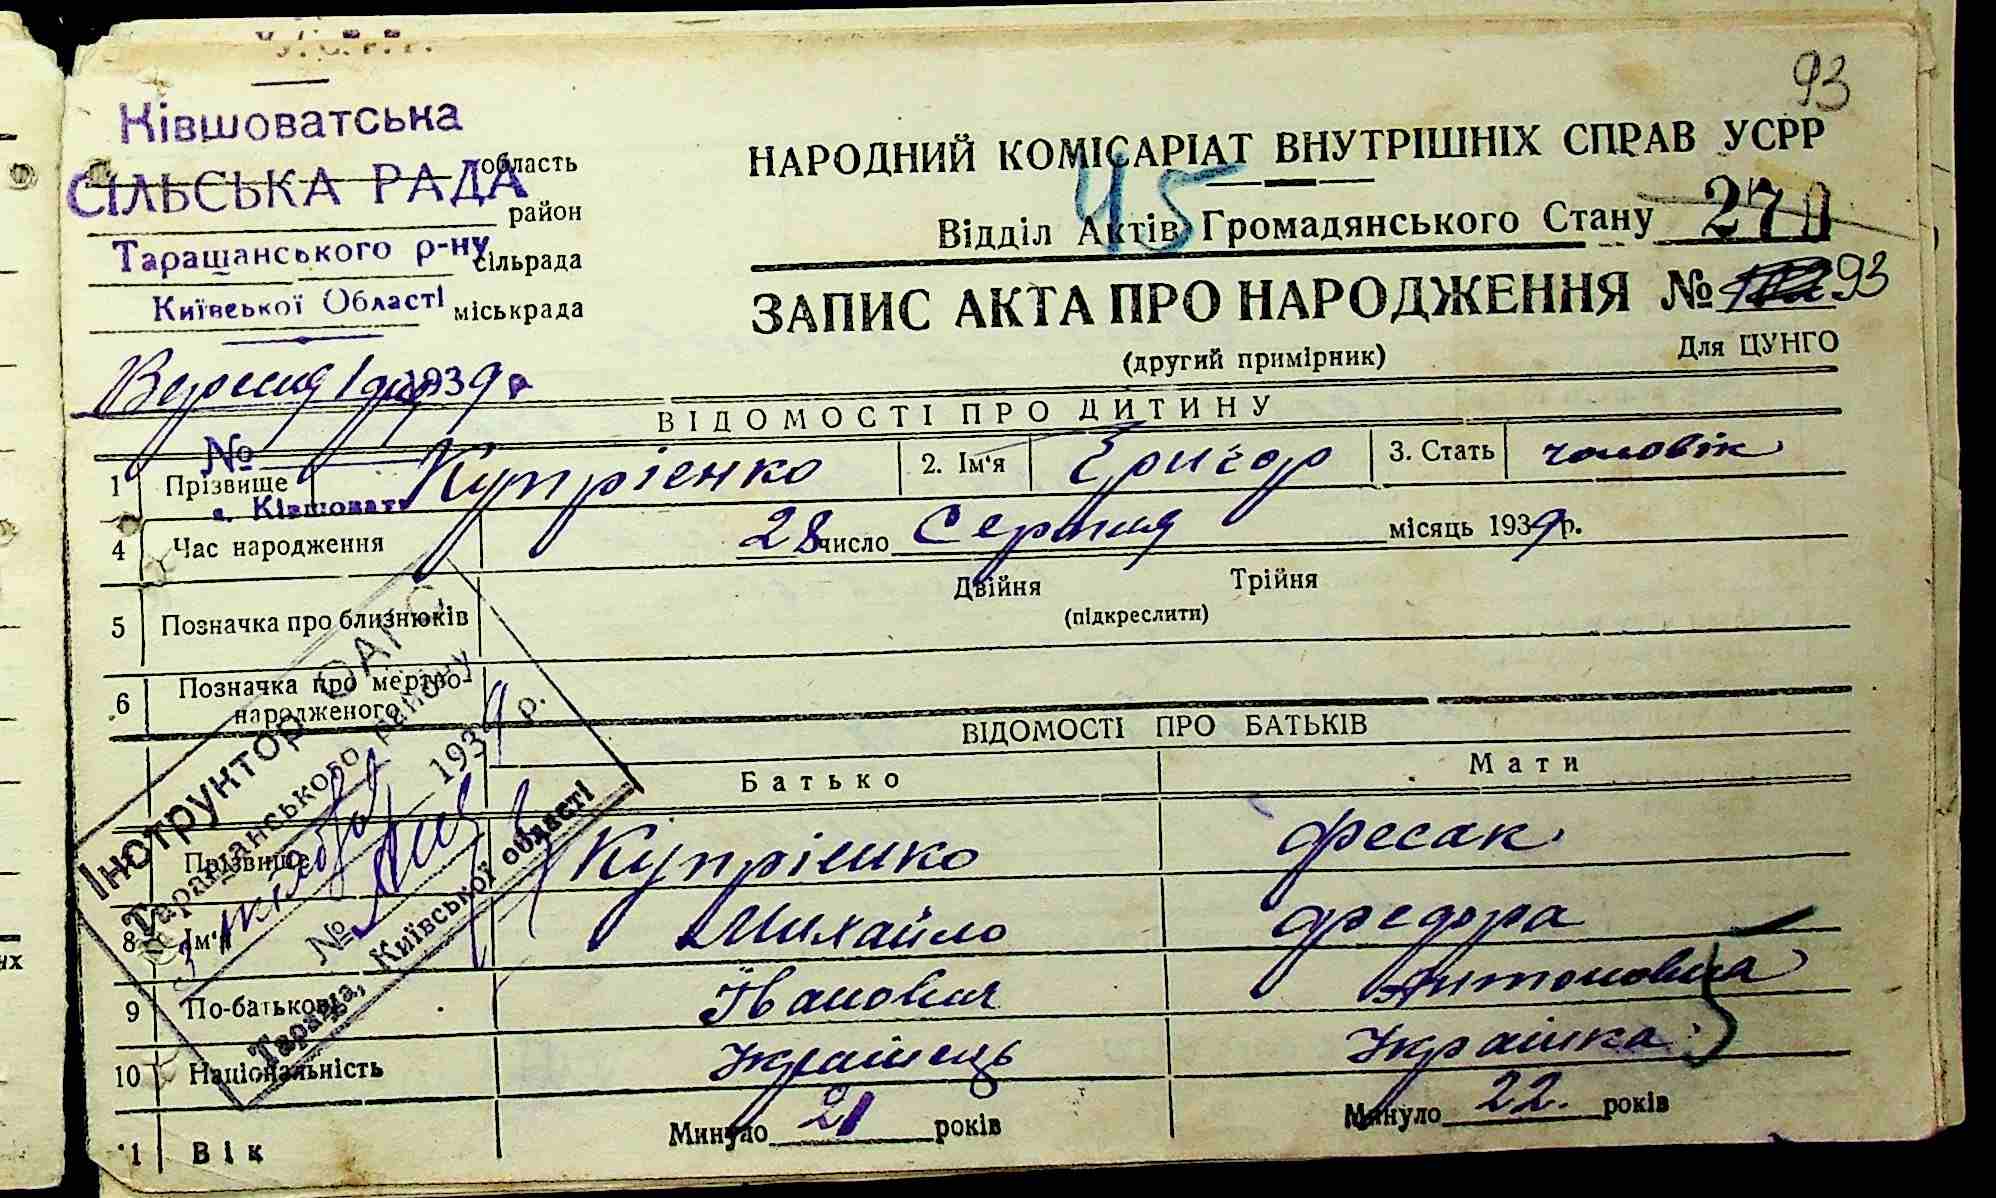 У.С.Р.Р.
93
Ківшоватська
область
СІЛЬСЬКА РАДА
район
Таращанського р-ну
сільрада
Київської Області
міськрада
НАРОДНИЙ КОМІСАРІАТ ВНУТРІШНІХ СПРАВ УСРР
45
Відділ Актів Громадянського Стану 270
ЗАПИС АКТА ПРО НАРОДЖЕННЯ № 93
(другий примірник)
Для ЦУНГО
Вересня 1 дня 1939 р.
ВІДОМОСТІ ПРО ДИТИНУ
№
1 Прізвище Купрієнко 2. Ім'я Григор 3. Стать чоловік
с. Ківшовата
4 Час народження 28 число Серпня місяць 1939 р.
5 Позначка про близнюків Двійня Трійня
(підкреслити)
6 Позначка про мертво-
народженого
ВІДОМОСТІ ПРО БАТЬКІВ
Батько Мати
Прізвище Купрієнко Фесак
8 Ім'я Михайло Федора
9 По-батькові Іванович Антоновна
10 Національність Українець Українка
11 Вік Минуло 21 років Минуло 22. років
Інструктор ОАГС
Таращанського району
1939 р.
№
Тараща, Київської області